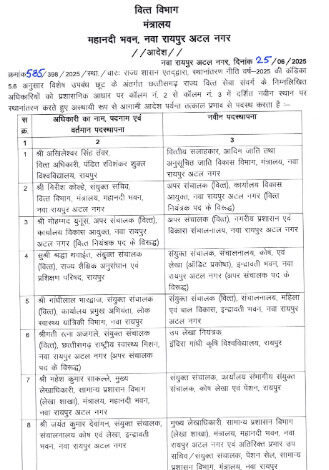 वित्त विभाग
मंत्रालय
महानदी भवन, नवा रायपुर अटल नगर
//आदेश//
नवा रायपुर अटल नगर, दिनांक 25/06/2025
क्रमांक 585/398/2025/स्था./चारः राज्य शासन एतद्द्वारा, स्थानांतरण नीति वर्ष–2025 की कंडिका
5.8 अनुसार विशेष उपबंध छूट के अंतर्गत छत्तीसगढ़ राज्य वित्त सेवा संवर्ग के निम्नलिखित
अधिकारियों को प्रशासनिक आधार पर कॉलम नं. 2 से कॉलम नं. 3 में दर्शित नवीन स्थान पर
स्थानांतरण करते हुए अस्थायी रूप से आगामी आदेश पर्यन्त तत्काल प्रभाव से पदस्थ करता है :–
स क्र. अधिकारी का नाम, पदनाम एवं वर्तमान पदस्थापना नवीन पदस्थापना
1 2 3
1 श्री अखिलेश्वर सिंह सेंवर, वित्तीय सलाहकार, आदिम जाति तथा
वित्त अधिकारी, पंडित रविशंकर शुक्ल अनुसूचित जाति विकास विभाग, मंत्रालय, नवा
विश्वविद्यालय, रायपुर रायपुर अटल नगर
2 श्री विरीश कोल्हे, संयुक्त सचिव, अपर संचालक (वित्त), कार्यालय विकास
वित्त विभाग, मंत्रालय, महानदी भवन, आयुक्त, नवा रायपुर अटल नगर (वित्त
नवा रायपुर अटल नगर नियंत्रक पद के विरूद्ध)
3 श्री मोहम्मद युनूस, अपर संचालक (वित्त), अपर संचालक (वित्त), नगरीय प्रशासन एवं
कार्यालय विकास आयुक्त, नवा रायपुर विकास संचालनालय, नवा रायपुर अटल नगर
अटल नगर (वित्त नियंत्रक पद के विरूद्ध)
4 सुश्री श्रद्धा संयुक्त संचालक संयुक्त संचालक, संचालनालय, कोष, एवं
(वित्त), राज्य शैक्षिक अनुसंधान एवं लेखा (ऑडिट प्रकोष्ठ), इन्द्रावती भवन, नवा
प्रशिक्षण परिषद, रायपुर रायपुर अटल नगर (अपर संचालक पद के
विरूद्ध)
5 श्री गांधीलाल भारद्वाज, संयुक्त संचालक संयुक्त संचालक (वित्त), संचालनालय, महिला
(वित्त), कार्यालय प्रमुख अभियंता, लोक एवं बाल विकास, इन्द्रावती भवन, नवा रायपुर
स्वास्थ्य यांत्रिकी विभाग, नवा रायपुर अटल नगर
6 श्रीमती रत्ना अजगले, संयुक्त संचालक उप लेखा नियंत्रक
(वित्त), छत्तीसगढ़ राष्ट्रीय स्वास्थ्य मिशन, इंदिरा गांधी कृषि विश्वविद्यालय, रायपुर
नवा रायपुर अटल नगर (अपर संचालक
पद के विरूद्ध)
7 श्री महेश कुमार साकल्ले, मुख्य संयुक्त संचालक, कार्यालय संभागीय संयुक्त
लेखाधिकारी, सामान्य प्रशासन विभाग संचालक, कोष लेखा एवं पेंशन, रायपुर
(लेखा शाखा), मंत्रालय, महानदी भवन,
नवा रायपुर अटल नगर
8 श्री जयंत कुमार देवांगन, संयुक्त संचालक, मुख्य लेखाधिकारी सामान्य प्रशासन विभाग
संचालनालय कोष एवं लेखा, इन्द्रावती (लेखा शाखा), मंत्रालय, महानदी भवन, नवा
भवन, नवा रायपुर अटल नगर रायपुर अटल नगर एवं अतिरिक्त प्रभार उप
सचिव/संयुक्त संचालक, पेंशन सेल, सामान्य
प्रशासन विभाग, मंत्रालय, नवा रायपुर अटल